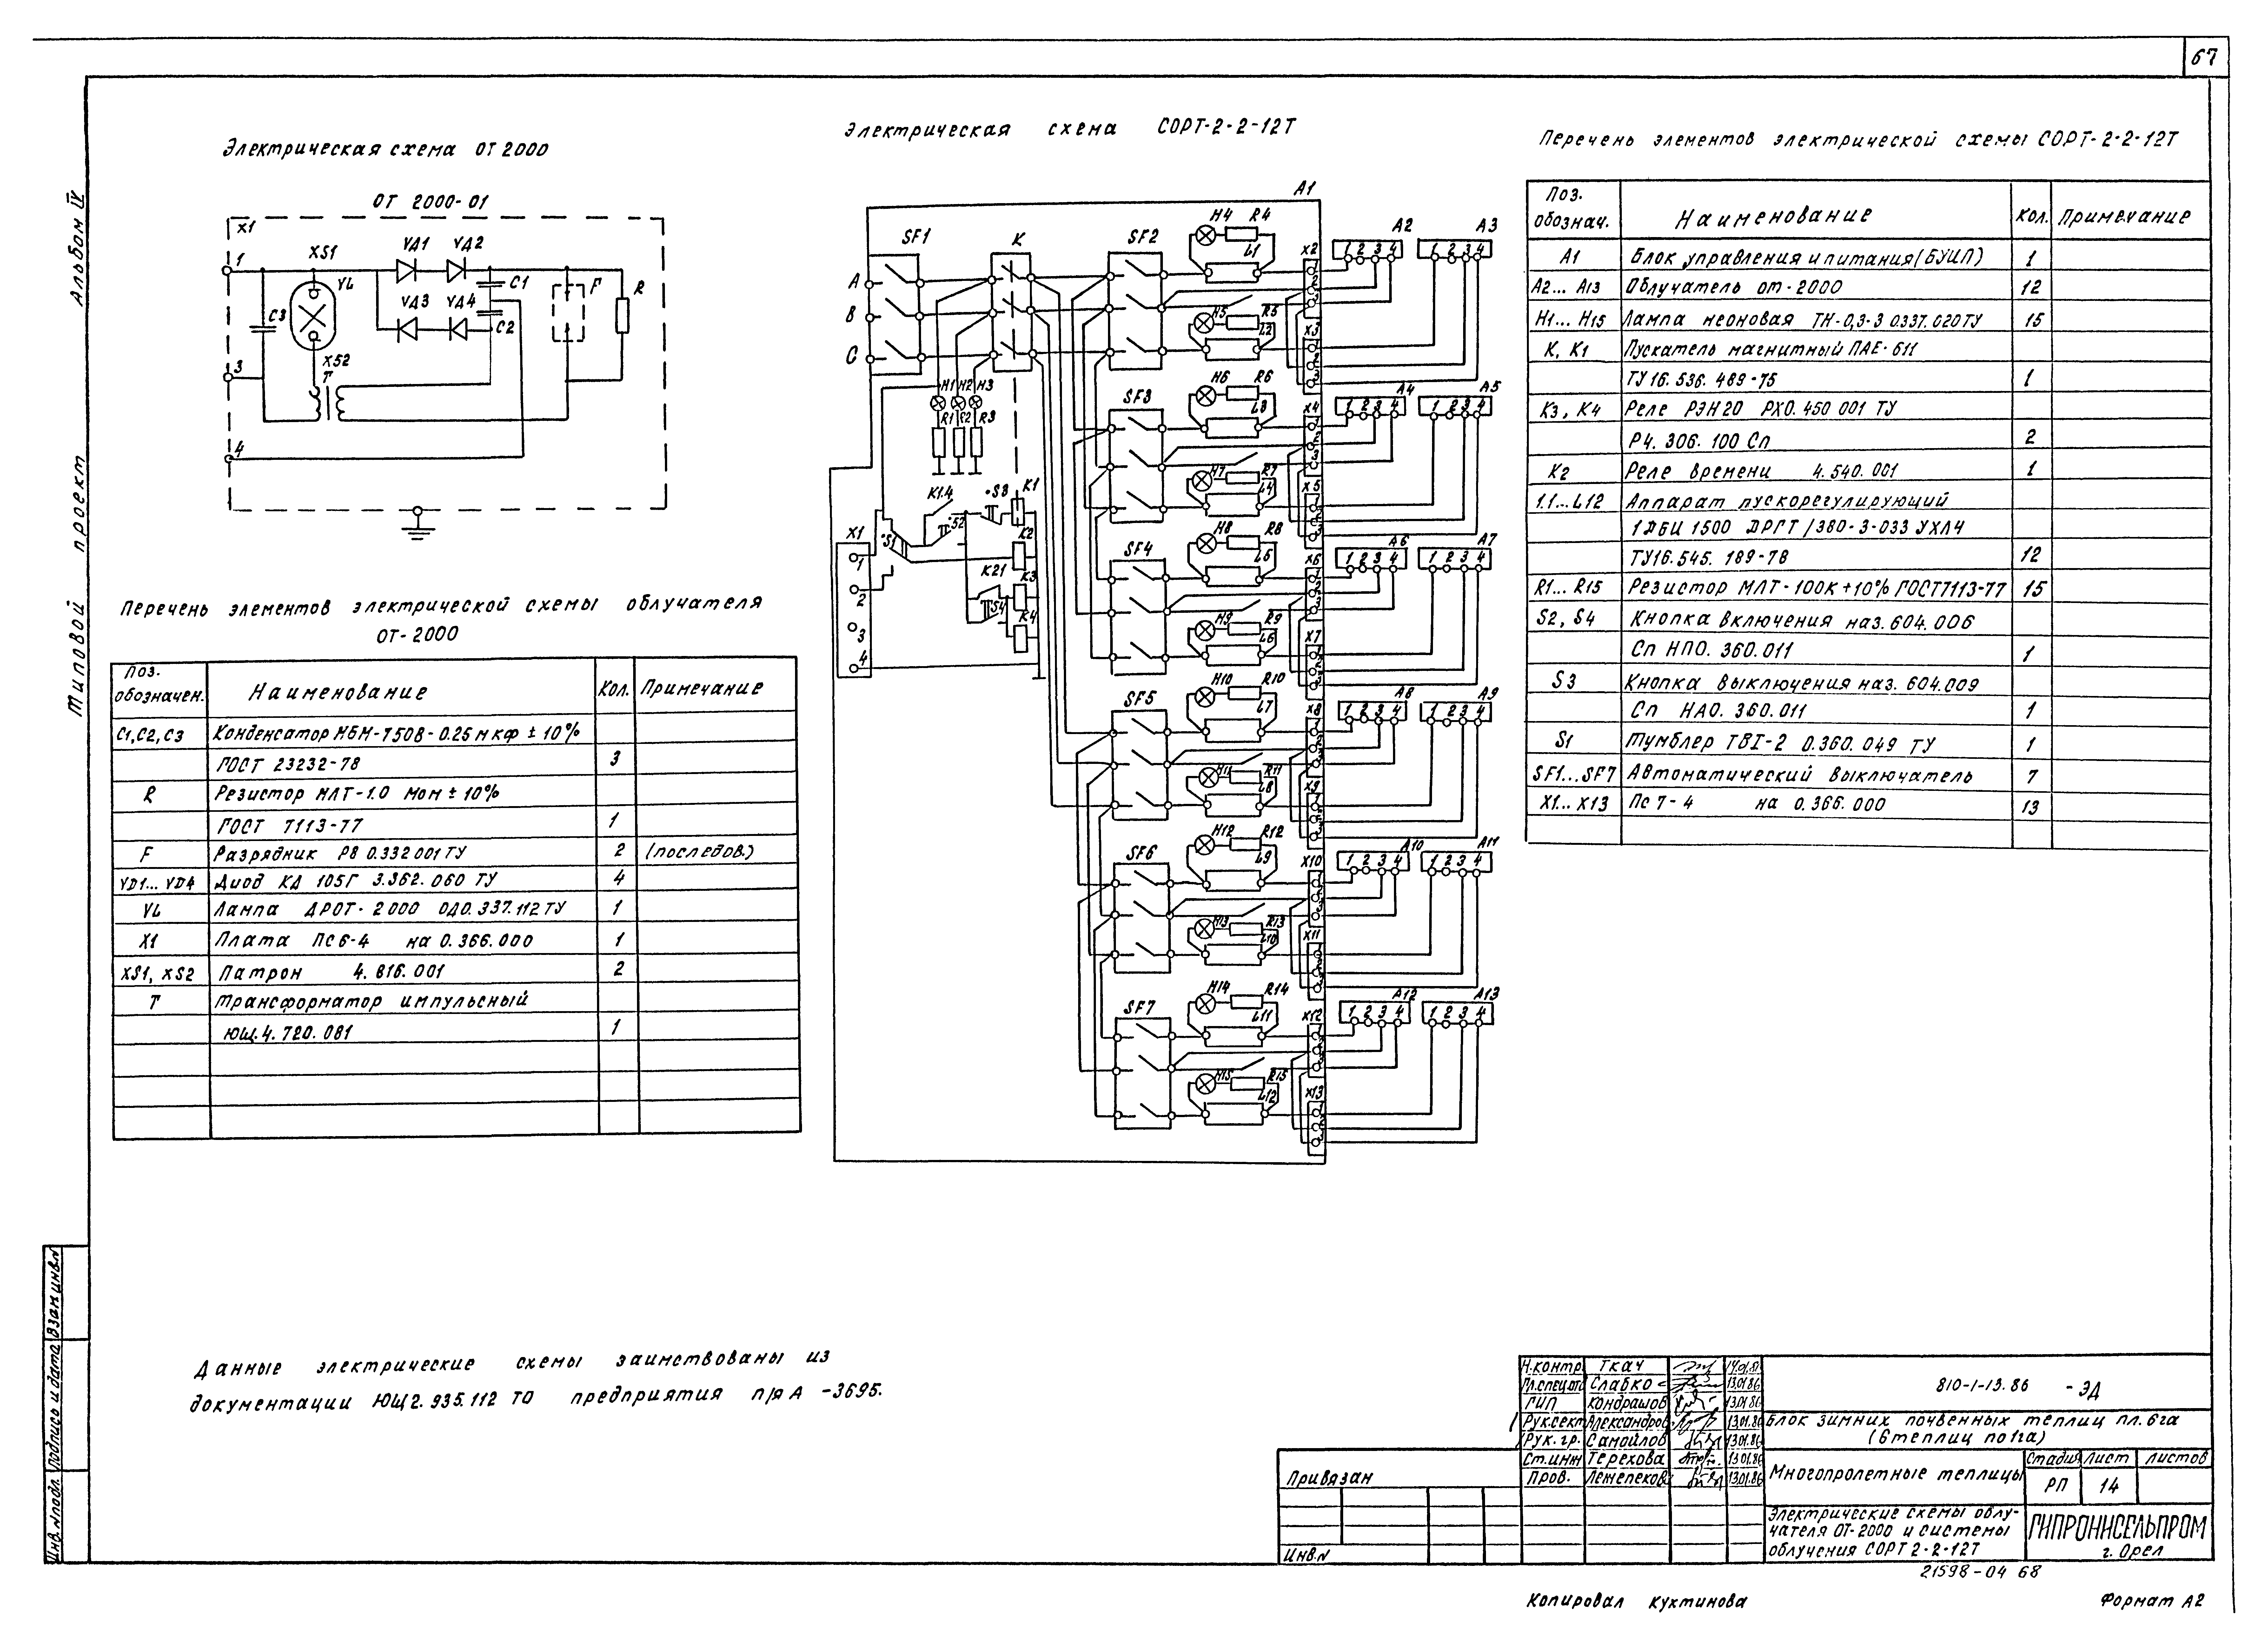 67
Альбом IV
Типовой проект
Электрическая схема ОТ 2000
ОТ 2000-01
X1
1
3
4
XS1
VL
XS2
T
C3
VД1
VД2
VД3
VД4
C1
C2
F
R
Перечень элементов электрической схемы облучателя
ОТ-2000
Поз. обозначен. Наименование Кол. Примечание
C1,C2,C3 Конденсатор МБМ-750В-0.25 мкф ± 10%
ГОСТ 23232-78 3
R Резистор МЛТ-1.0 Мом ± 10%
ГОСТ 7113-77 1
F Разрядник Р8 0.332 001 ТУ 2 (последов.)
VD1... VD4 Диод КД 105Г 3.362.060 ТУ 4
VL Лампа ДРОТ-2000 ОД0.337.112 ТУ 1
X1 Плата Пс6-4 на 0.366.000 1
XS1, XS2 Патрон 4.816.001 2
T Трансформатор импульсный
ЮЩ.4.720.081 1
Электрическая схема СОРТ-2-2-12Т
A1
SF1
K
SF2
A
B
C
H1 H2 H3
R1 R2 R3
H4 R4
L1
H5 R5
L2
X2
X3
A2
1 2 3 4
A3
1 2 3 4
SF3
H6 R6
L3
H7 R7
L4
X4
X5
A4
1 2 3 4
A5
1 2 3 4
K1.4
S3
K1
S2
S1
K2
K2.1
K3
S4
K4
X1
1
2
3
4
SF4
H8 R8
L5
H9 R9
L6
X6
X7
A6
1 2 3 4
A7
1 2 3 4
SF5
H10 R10
L7
H11 R11
L8
X8
X9
A8
1 2 3 4
A9
1 2 3 4
SF6
H12 R12
L9
H13 R13
L10
X10
X11
A10
1 2 3 4
A11
1 2 3 4
SF7
H14 R14
L11
H15 R15
L12
X12
X13
A12
1 2 3 4
A13
1 2 3 4
Перечень элементов электрической схемы СОРТ-2-2-12Т
Поз. обознач. Наименование Кол. Примечание
A1 Блок управления и питания (БУИП) 1
A2... A13 Облучатель от-2000 12
H1... H15 Лампа неоновая ТН-0,3-3 0337.020ТУ 15
K, K1 Пускатель магнитный ПАЕ-611
ТУ 16.536.489-75 1
K3, K4 Реле РЭН20 РХ0.450 001 ТУ
Р4.306.100 Сп 2
K2 Реле времени 4.540.001 1
1.1... L12 Аппарат пускорегулирующий
1ДБИ 1500 ДРГТ/380-3-033 УХЛ4
ТУ16.545.189-78 12
R1... R15 Резистор МЛТ-100К+10% ГОСТ7113-77 15
S2, S4 Кнопка включения наз.604.006
Сп НПО.360.011 1
S3 Кнопка выключения наз.604.009
Сп НАО.360.011 1
S1 Тумблер ТВ1-2 0.360.049 ТУ 1
SF1...SF7 Автоматический выключатель 7
X1... X13 Пс 7-4 на 0.366.000 13
Данные электрические схемы заимствованы из
документации ЮЩ2.935.112 ТО предприятия п/я А-3695.
Инв.№подл. Подпись и дата Взам инв.№
Н.контр. Ткач 14.01.86
Гл.спец.отд Слабко 13.01.86
ГИП Кондрашов 13.01.86
Рук.сект. Александров 13.01.86
Рук. гр. Самойлов 13.01.86
Ст.инж Терехова 13.01.86
Пров. 13.01.86
Привязан
Инв.№
810-1-13.86 -ЭД
Блок зимних почвенных теплиц пл.6га
(6 теплиц по 1га)
Многопролетные теплицы
Стадия Лист Листов
РП 14
Электрические схемы облу-
чателя ОТ-2000 и системы
облучения СОРТ 2-2-12Т
ГИПРОНИСЕЛЬПРОМ
г. Орел
21598-04 68
Копировал Кухтинова
Формат А2